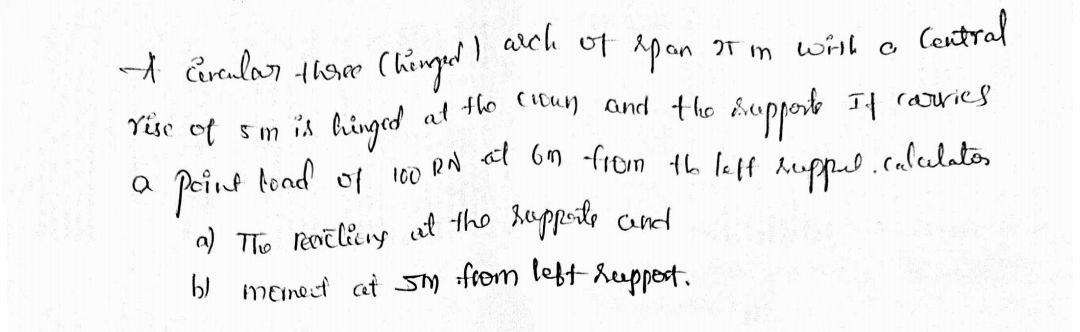 A circular three (hinged) arch of span 25 m with a Central
rise of 5m is hinged at the crown and the supports It carries
a point load of 100 KN at 6m from the left support. calculate
a) The reactions at the supports and
b) moment at 5m from left support.